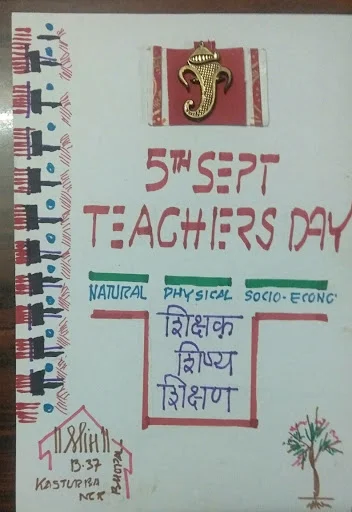 5TH SEPT
TEACHERS DAY
NATURAL PHYSICAL SOCIO-ECONC
शिक्षक
शिष्य
शिक्षण
B-37
KASTURBA
NGR